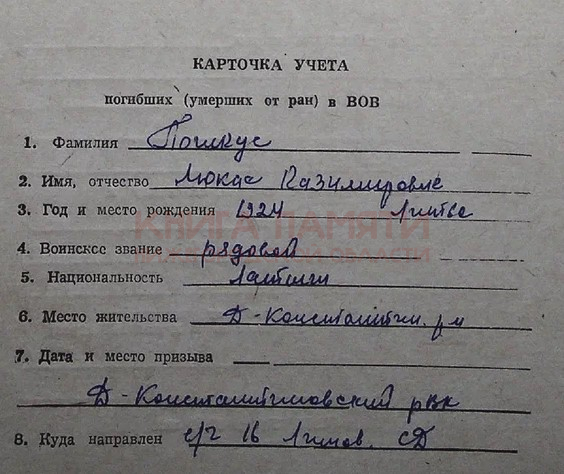 КАРТОЧКА УЧЕТА
погибших (умерших от ран) в ВОВ
1. Фамилия
2. Имя, отчество Люкас Казимирович
3. Год и место рождения 1924 Литве
КНИГА ПАМЯТИ
4. Воинское звание рядовой
5. Национальность
6. Место жительства Д-Константин. р-н
7. Дата и место призыва
Д-Константиновский рвк
8. Куда направлен с/ч 16 Литов. СД